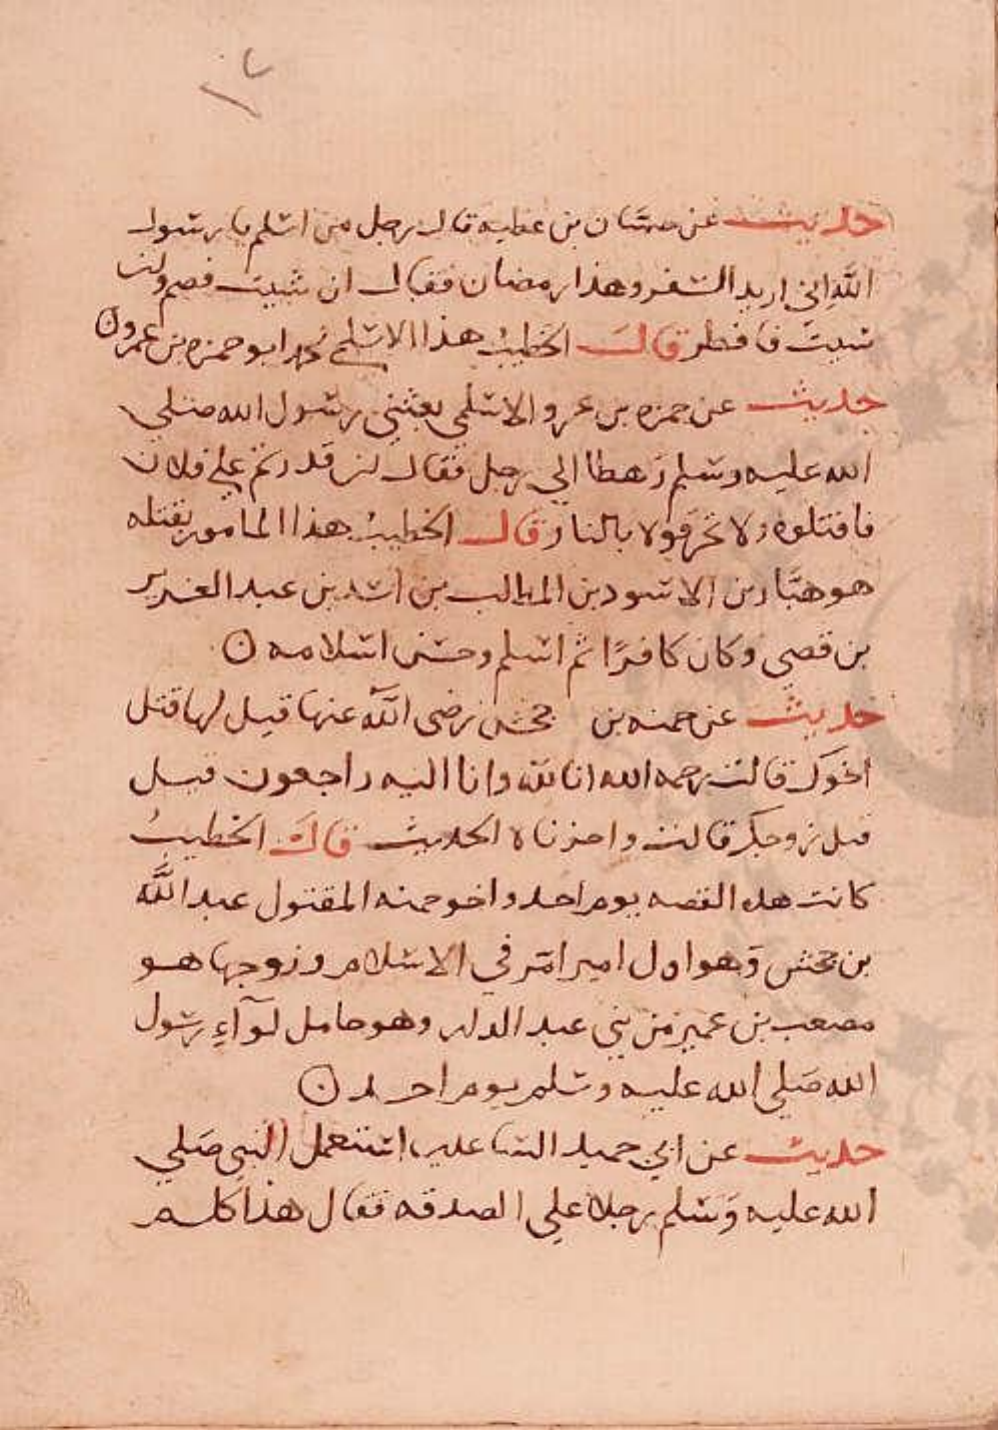 حديث عن حسان بن عطيه قال رجل من اسلم يا رسول
الله اني اريد السفر وهذا رمضان فقال ان شيت فصم وان
شيت فافطر قال الخطيب هذا الاسلمي ابو حمزه بن عمرو
حديث عن حمزه بن عمرو الاسلمي بعثني رسول الله صلي
الله عليه وسلم رهطا الي رجل فقال لن قدرتم علي فلان
فاقتلوه ولا تحرقوه بالنار قال الخطيب هذا المامور بقتله
هو هبار بن الاسود بن المطلب بن اسد بن عبد العزيز
بن قصي وكان كافرًا ثم اسلم وحسن اسلامه
حديث عن حمنه بن جحش رضي الله عنها قيل لها قتل
اخوك قالت رحمه الله انا لله وانا اليه راجعون قيل
قتل زوجك قالت واحزناه الحديث قال الخطيبُ
كانت هذه القصه يوم احد واخو حمنه المقتول عبد الله
بن جحش وهو اول امير امر في الاسلام وزوجها هو
مصعب بن عمير من بني عبد الدار وهو حامل لوآء رسول
الله صلي الله عليه وسلم يوم احد
حديث عن ابي حميد الساعدي استعمل النبي صلي
الله عليه وسلم رجلا علي الصدقه فقال هذا لكم